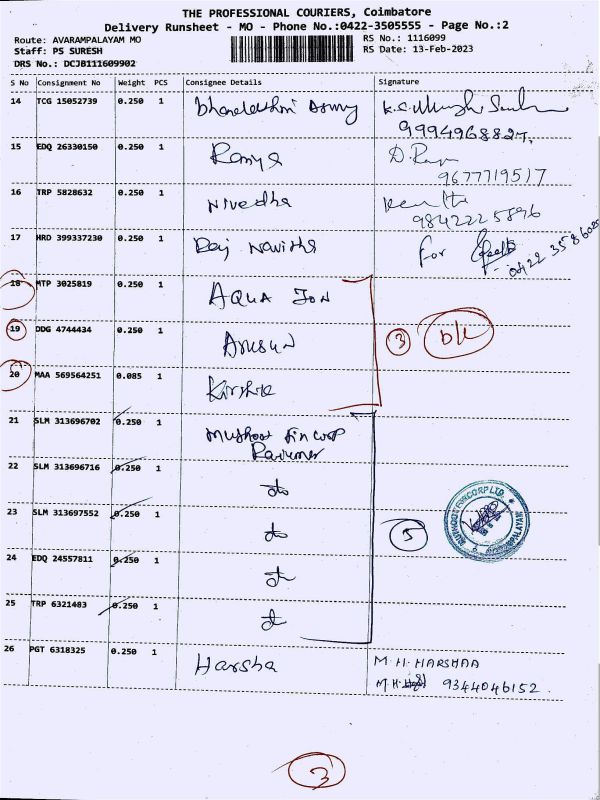 THE PROFESSIONAL COURIERS, Coimbatore
Delivery Runsheet - MO - Phone No.:0422-3505555 - Page No.:2
Route: AVARAMPALAYAM MO
RS No.: 1116099
Staff: PS SURESH
RS Date: 13-Feb-2023
DRS No.: DCJB111609902
S No Consignment No Weight PCS Consignee Details Signature
14 TCG 15052739 0.250 1
9994968827.
15 EDQ 26330150 0.250 1 Ramya
9677719517
16 TRP 5828632 0.250 1 Nivedha
9842225896
17 HRD 399337230 0.250 1 Raj Navitha For
0422 3586020
18 MTP 3025819 0.250 1 AQUA ION
19 DDG 4744434 0.250 1 3
20 MAA 569564251 0.085 1
21 SLM 313696702 0.250 1 Muthoot Fincorp
22 SLM 313696716 0.250 1 do
23 SLM 313697552 0.250 1 do 5
24 EDQ 24557811 0.250 1 do
25 TRP 6321483 0.250 1 do
26 PGT 6318325 0.250 1 Harsha M.H.HARSHAA
M.H. 9344046152.
3